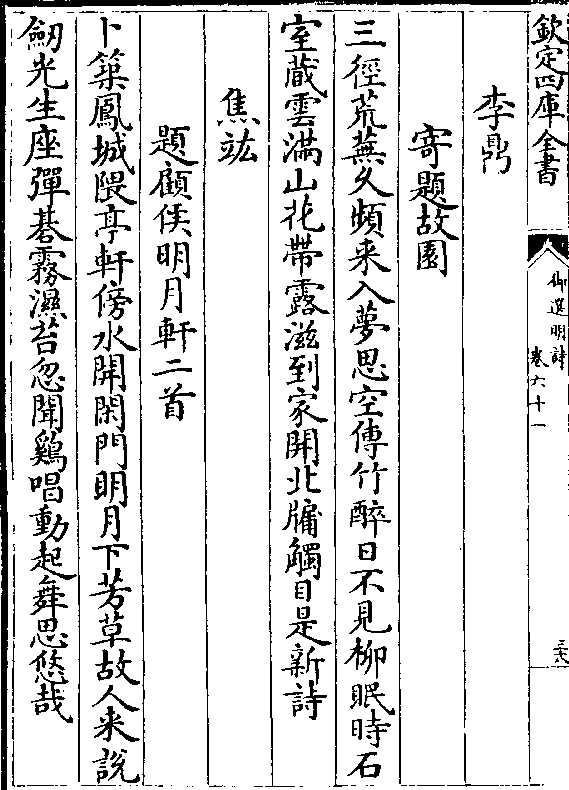 欽定四庫全書
御選明詩
卷六十一
三十六
李鼎
寄題故園
三徑荒蕪久頻来入夢思空傳竹醉日不見柳眠時石
室蔵雲滿山花帶露滋到家開北牖觸目是新詩
焦竑
題顧侯明月軒二首
卜築鳳城隈亭軒傍水開閑門明月下芳草故人来說
劔光生座彈碁霧濕苔忽聞鷄唱動起舞思悠哉